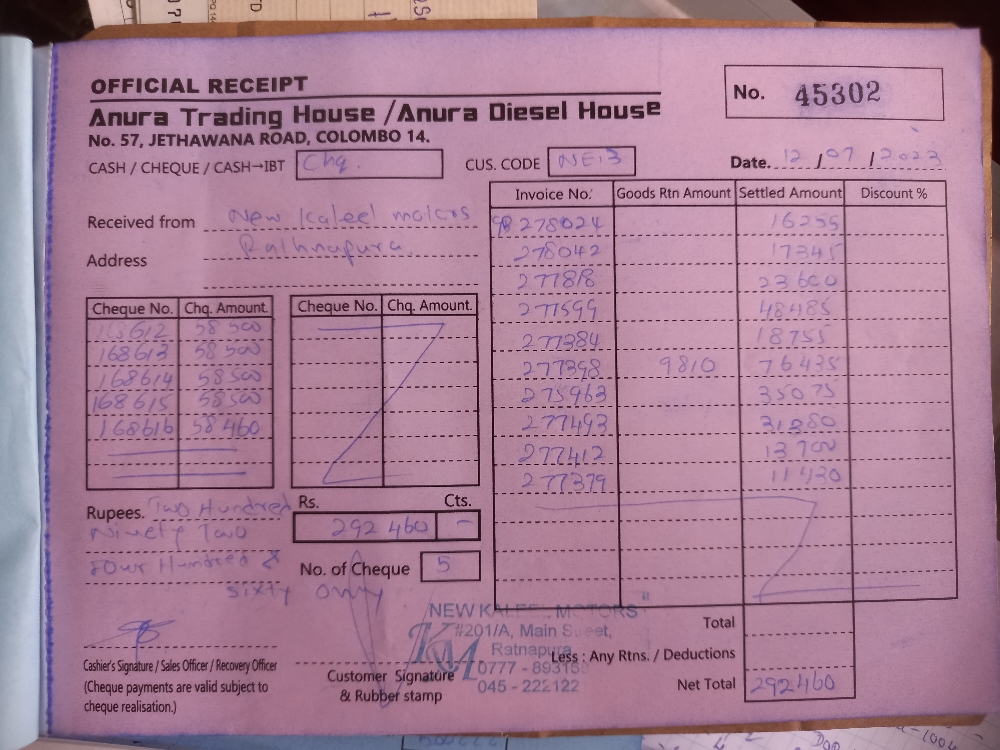 OFFICIAL RECEIPT
No. 45302
Anura Trading House /Anura Diesel House
No. 57, JETHAWANA ROAD, COLOMBO 14.
CASH / CHEQUE / CASH→IBT Chq. CUS. CODE NE13 Date. 12 / 07 / 2023
Received from New Kaleel motors
Address Rathnapura
Invoice No. Goods Rtn Amount Settled Amount Discount %
278024 16255
278042 17345
277818 23600
277599 48485
277384 18755
277398 9810 76435
275963 35075
277493 31380
277412 13700
277379 11430
Cheque No. Chq. Amount. Cheque No. Chq. Amount.
168612 58500
168613 58500
168614 58500
168615 58500
168616 58460
Rupees. Two Hundred
Ninety Two
Four Hundred &
sixty only
Rs. Cts.
292 460 -
No. of Cheque 5
NEW KALEEL MOTORS
#201/A, Main Street,
Ratnapura
0777 -
045 - 222122
KM
Cashier's Signature / Sales Officer / Recovery Officer
(Cheque payments are valid subject to
cheque realisation.)
Customer Signature
& Rubber stamp
Total
Less : Any Rtns. / Deductions
Net Total 292460